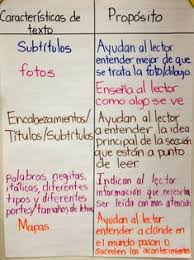 Características de texto
Propósito
Subtítulos
Ayudan al lector
entender mejor de que
se trata la foto/dibujo
fotos
Enseña al lector
como algo se ve
Encabezamientos/
Títulos/Subtítulos
Ayudan al lector
a entender la idea
principal de la sección
que están a punto
de leer
Palabras negritas,
itálicas, diferentes
tipos y diferentes
portes/tamaños de letras
Indican al lector
información que necesita
ser leída con más atención
Mapas
Ayudan al lector
entender a dónde en
el mundo pasan o
suceden los acontecimientos